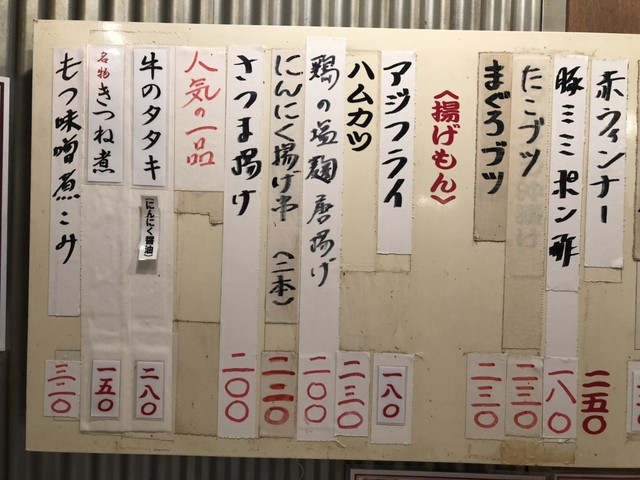 赤ウィンナー
二五〇
豚ミミポン酢
一八〇
たこブツ
二三〇
まぐろブツ
二三〇
〈揚げもん〉
アジフライ
一八〇
ハムカツ
二三〇
鶏の塩麹唐揚げ
二〇〇
にんにく揚げ串(二本)
二二〇
さつま揚げ
二〇〇
人気の一品
牛のタタキ
(にんにく醤油)
二八〇
名物きつね煮
一五〇
もつ味噌煮こみ
三二〇